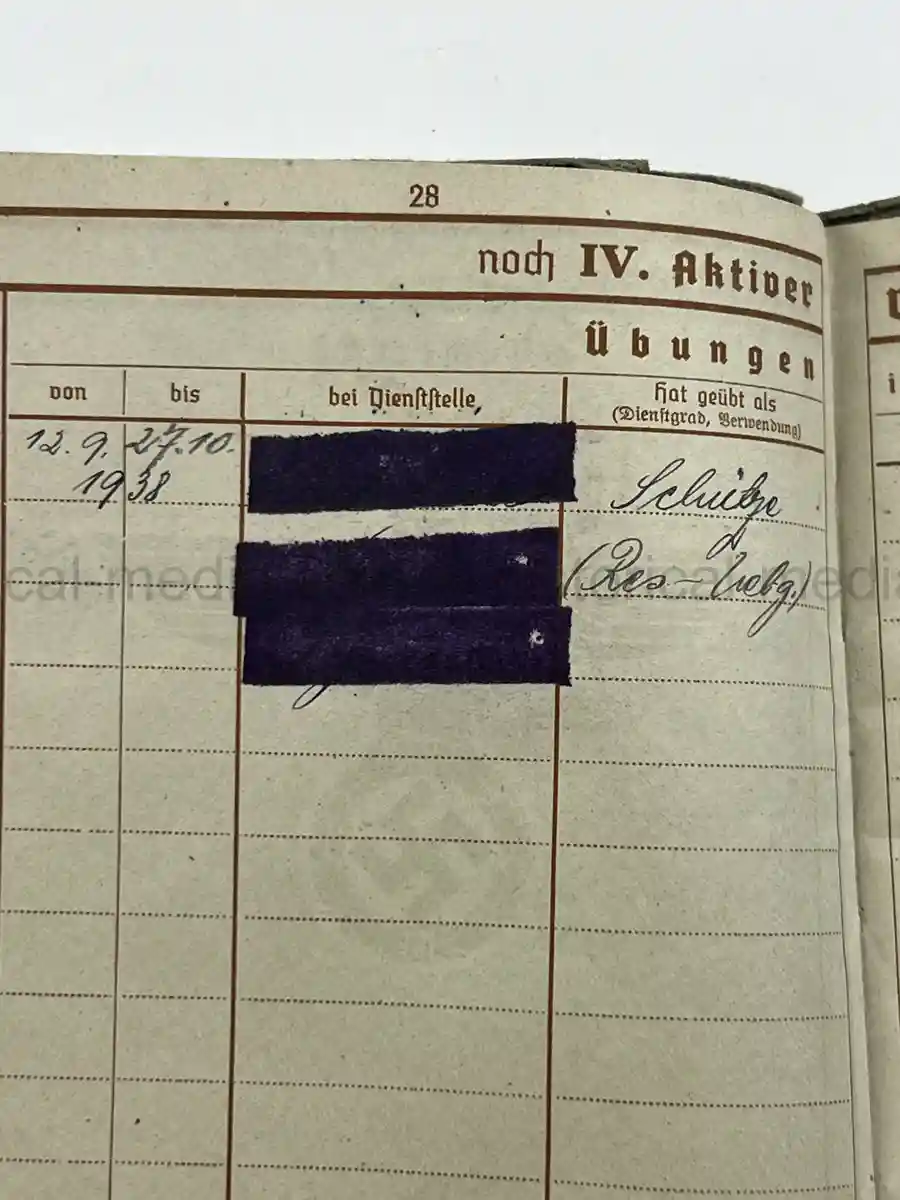 28
noch IV. Aktiver
Übungen
von bis bei Dienststelle, Hat geübt als
(Dienstgrad, Verwendung)
12. 9. 27.10. 
1938 Schütze
(Res-Uebg.)